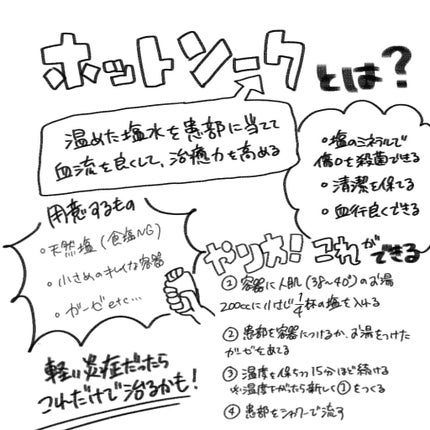 ホットソークとは?
温めた塩水を患部に当てて
血流を良くして、治癒力を高める
。塩のミネラルで
傷口を殺菌できる
。清潔を保てる
。血行良くできる
用意するもの
。天然塩(食塩NG)
。小さめのキレイな容器
。ガーゼetc...
軽い炎症だったら
これだけで治るかも!
やり方!これができる
① 容器に人肌(38~40°)のお湯
200ccに小さじ1/4杯の塩を入れる
② 患部を容器につけるか、お湯をつけた
ガーゼをあてる
③ 温度を保ちつつ15分ほど続ける
※温度下がったら新しく①をつくる
④ 患部をシャワーで流す